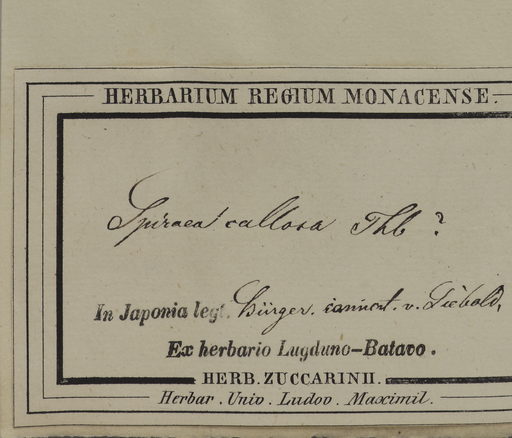 HERBARIUM REGIUM MONACENSE.
Spiraea callosa Thb ?
In Japonia legt. Bürger. com̄. v. Siebold,
Ex herbario Lugduno-Batavo.
HERB. ZUCCARINII.
Herbar. Univ. Ludov. Maximil.